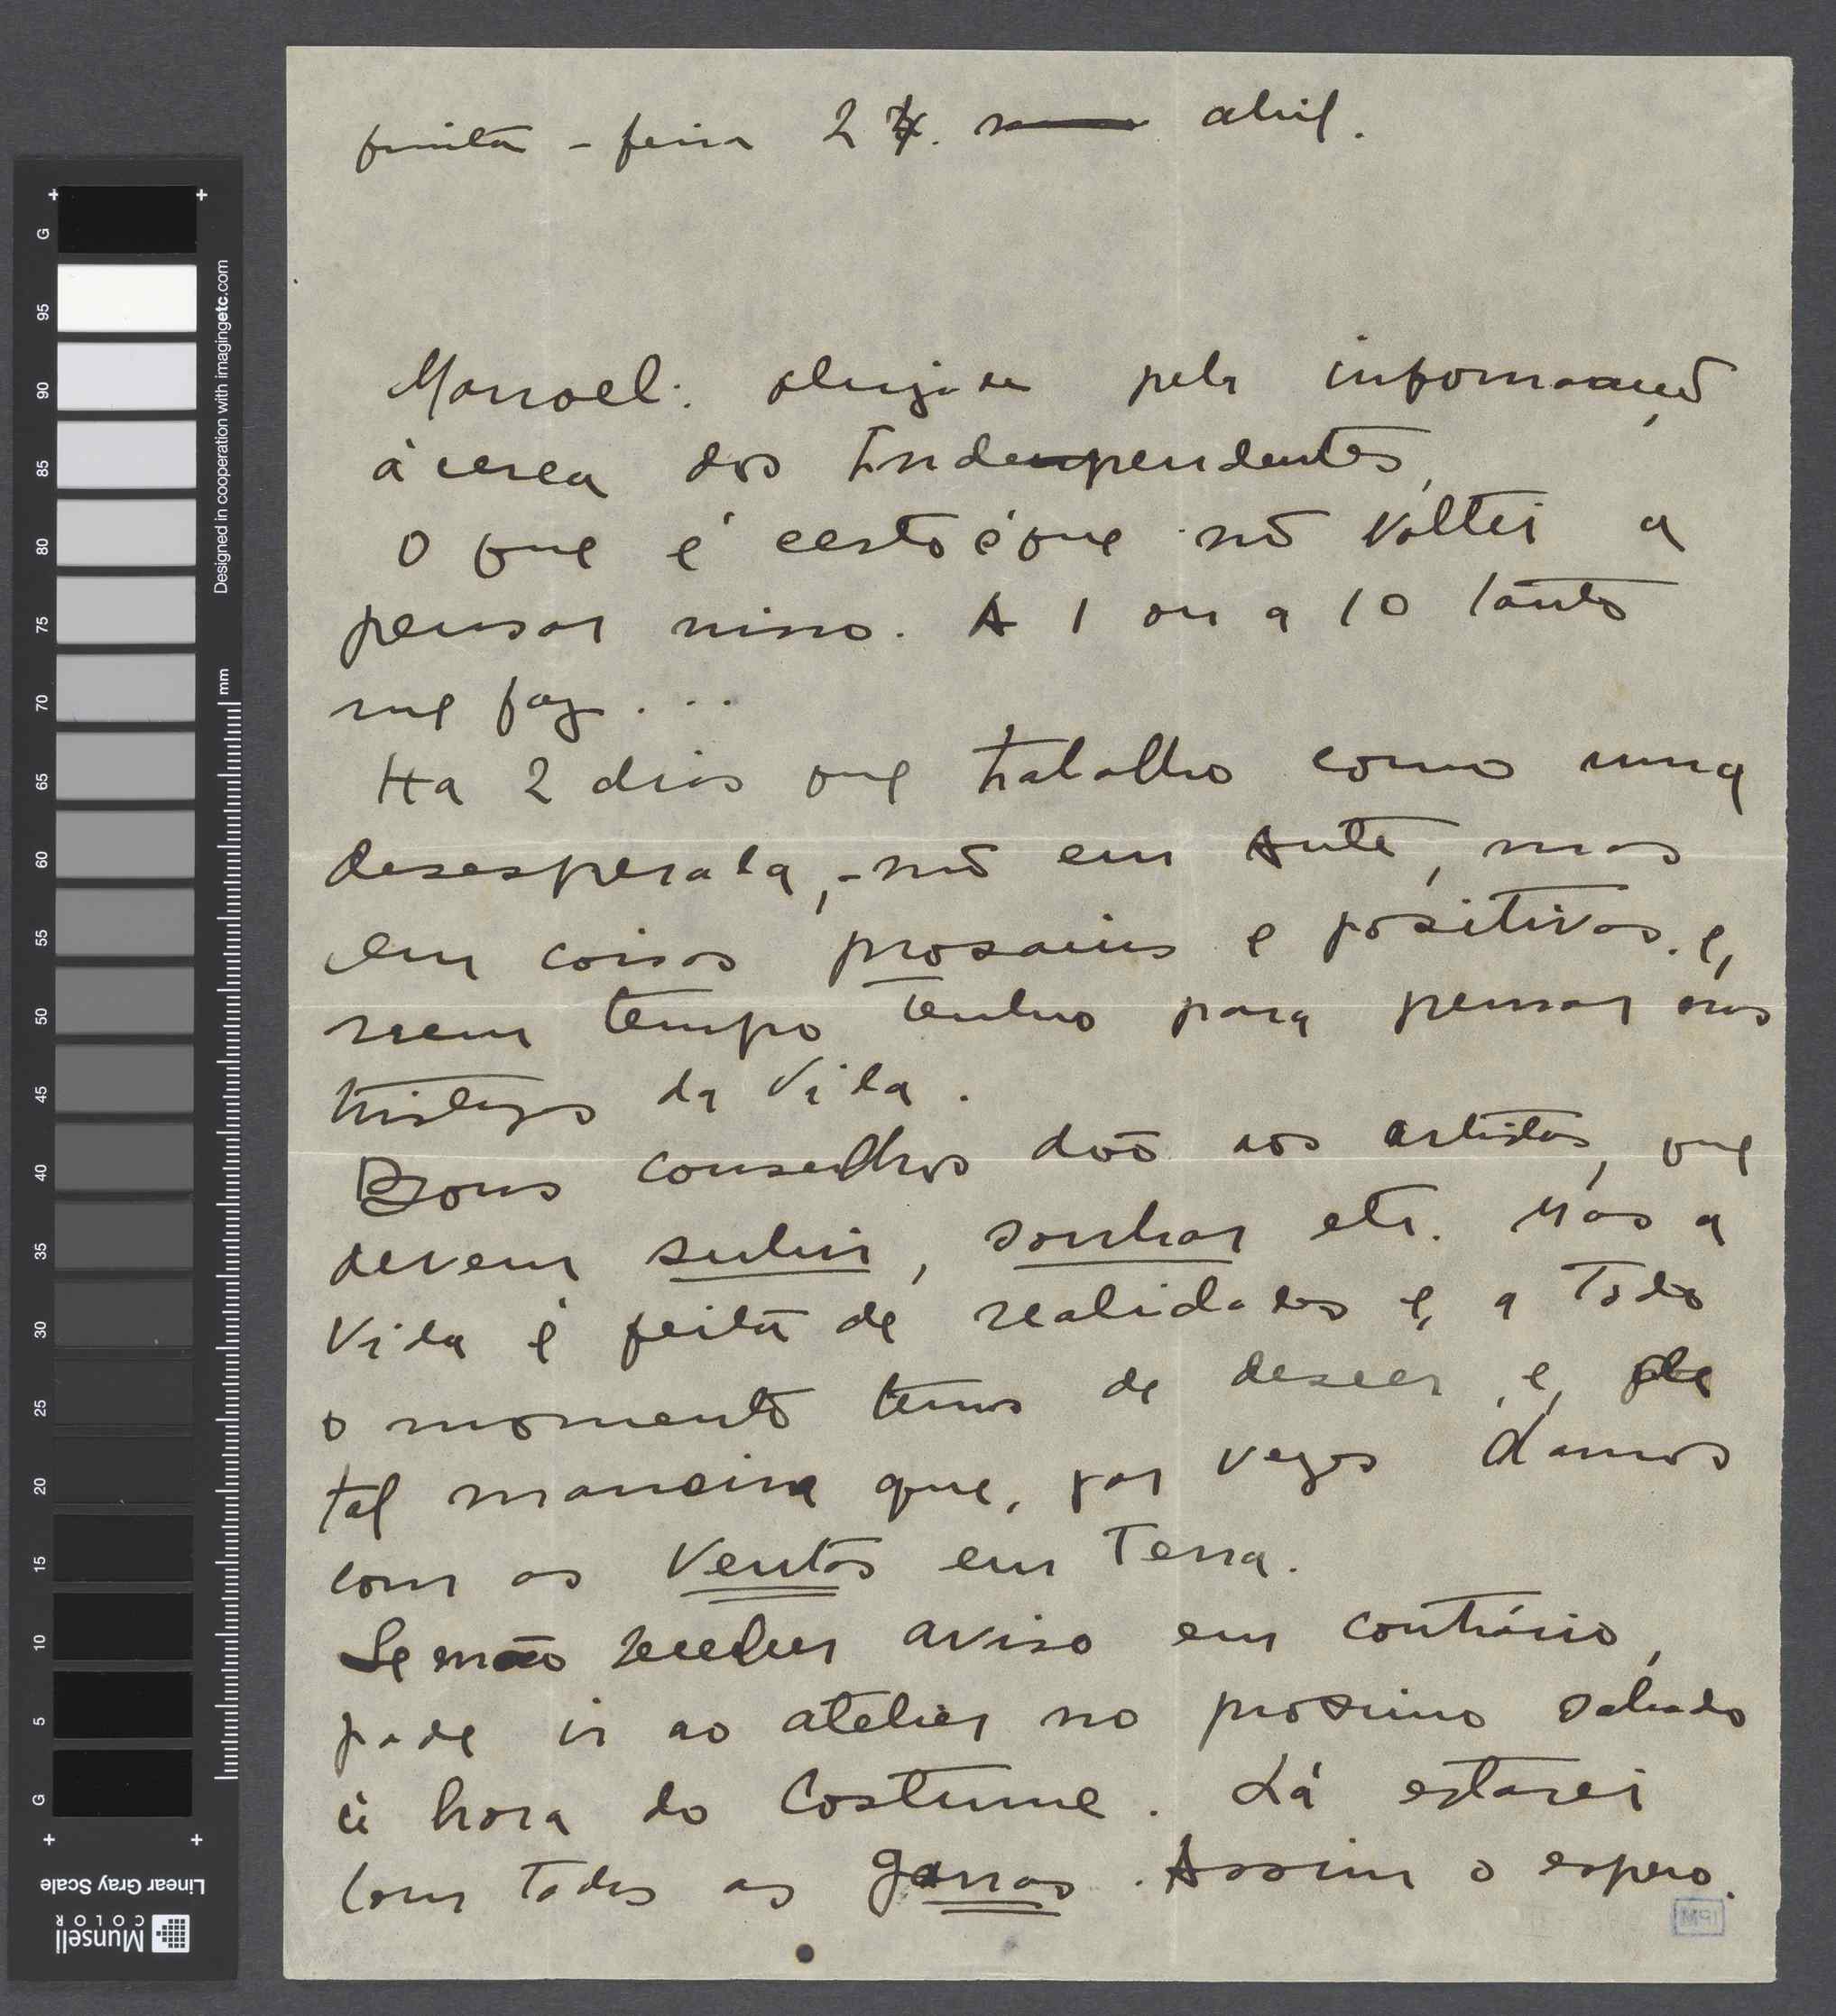 quinta-feira 24. abril.
Manoel: obrigada pela informação
àcerca dos Independentes,
O que é certo é que não voltei a
pensar nisso. A 1 ou a 10 tanto
me faz...
Ha 2 dias que trabalho como uma
desesperada, - não em Arte, mas
em coisas prosaicas e positivas. e,
nem tempo tenho para pensar nas
tristezas da Vida.
Bons conselhos dão aos artistas, que
devem subir, sonhar etc. Mas a
Vida é feita de realidades e, a Todo
o momento temos de descer, e, de
tal maneira que, por vezes damos
com as Ventas em Terra.
Se não receber aviso em contrário,
pode ir ao atelier no proximo sabado
à hora do costume. Lá estarei
com todas as garras. Assim o espero.
G 95 90 85 80 75 70 65 60 55 50 45 40 35 30 25 20 15 10 5 G
Designed in cooperation with imagingetc.com
mm
Linear Gray Scale
Munsell
COLOR